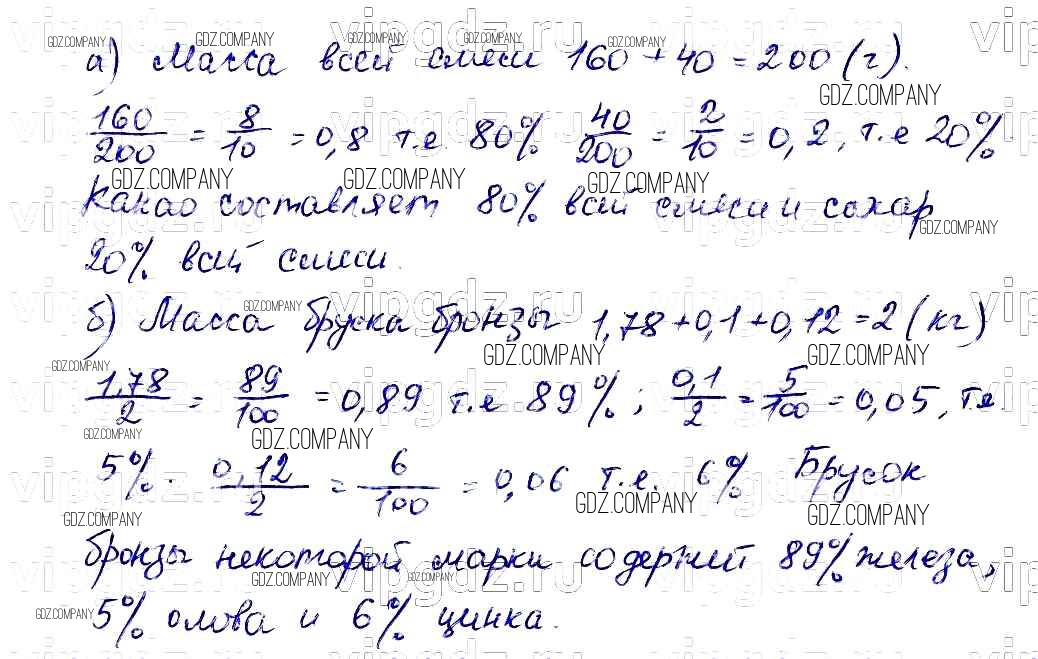 а) Масса всей смеси 160 + 40 = 200 (г).
160/200 = 8/10 = 0,8 т.е. 80% 40/200 = 2/10 = 0,2, т.е 20%.
Какао составляет 80% всей смеси и сахар
20% всей смеси.
б) Масса бруска бронзы 1,78+0,1+0,12=2 (кг)
1,78/2 = 89/100 = 0,89 т.е 89%; 0,1/2 = 5/100 = 0,05, т.е.
5%. 0,12/2 = 6/100 = 0,06 т.е. 6% Брусок
бронзы некоторой марки содержит 89% железа,
5% олова и 6% цинка.